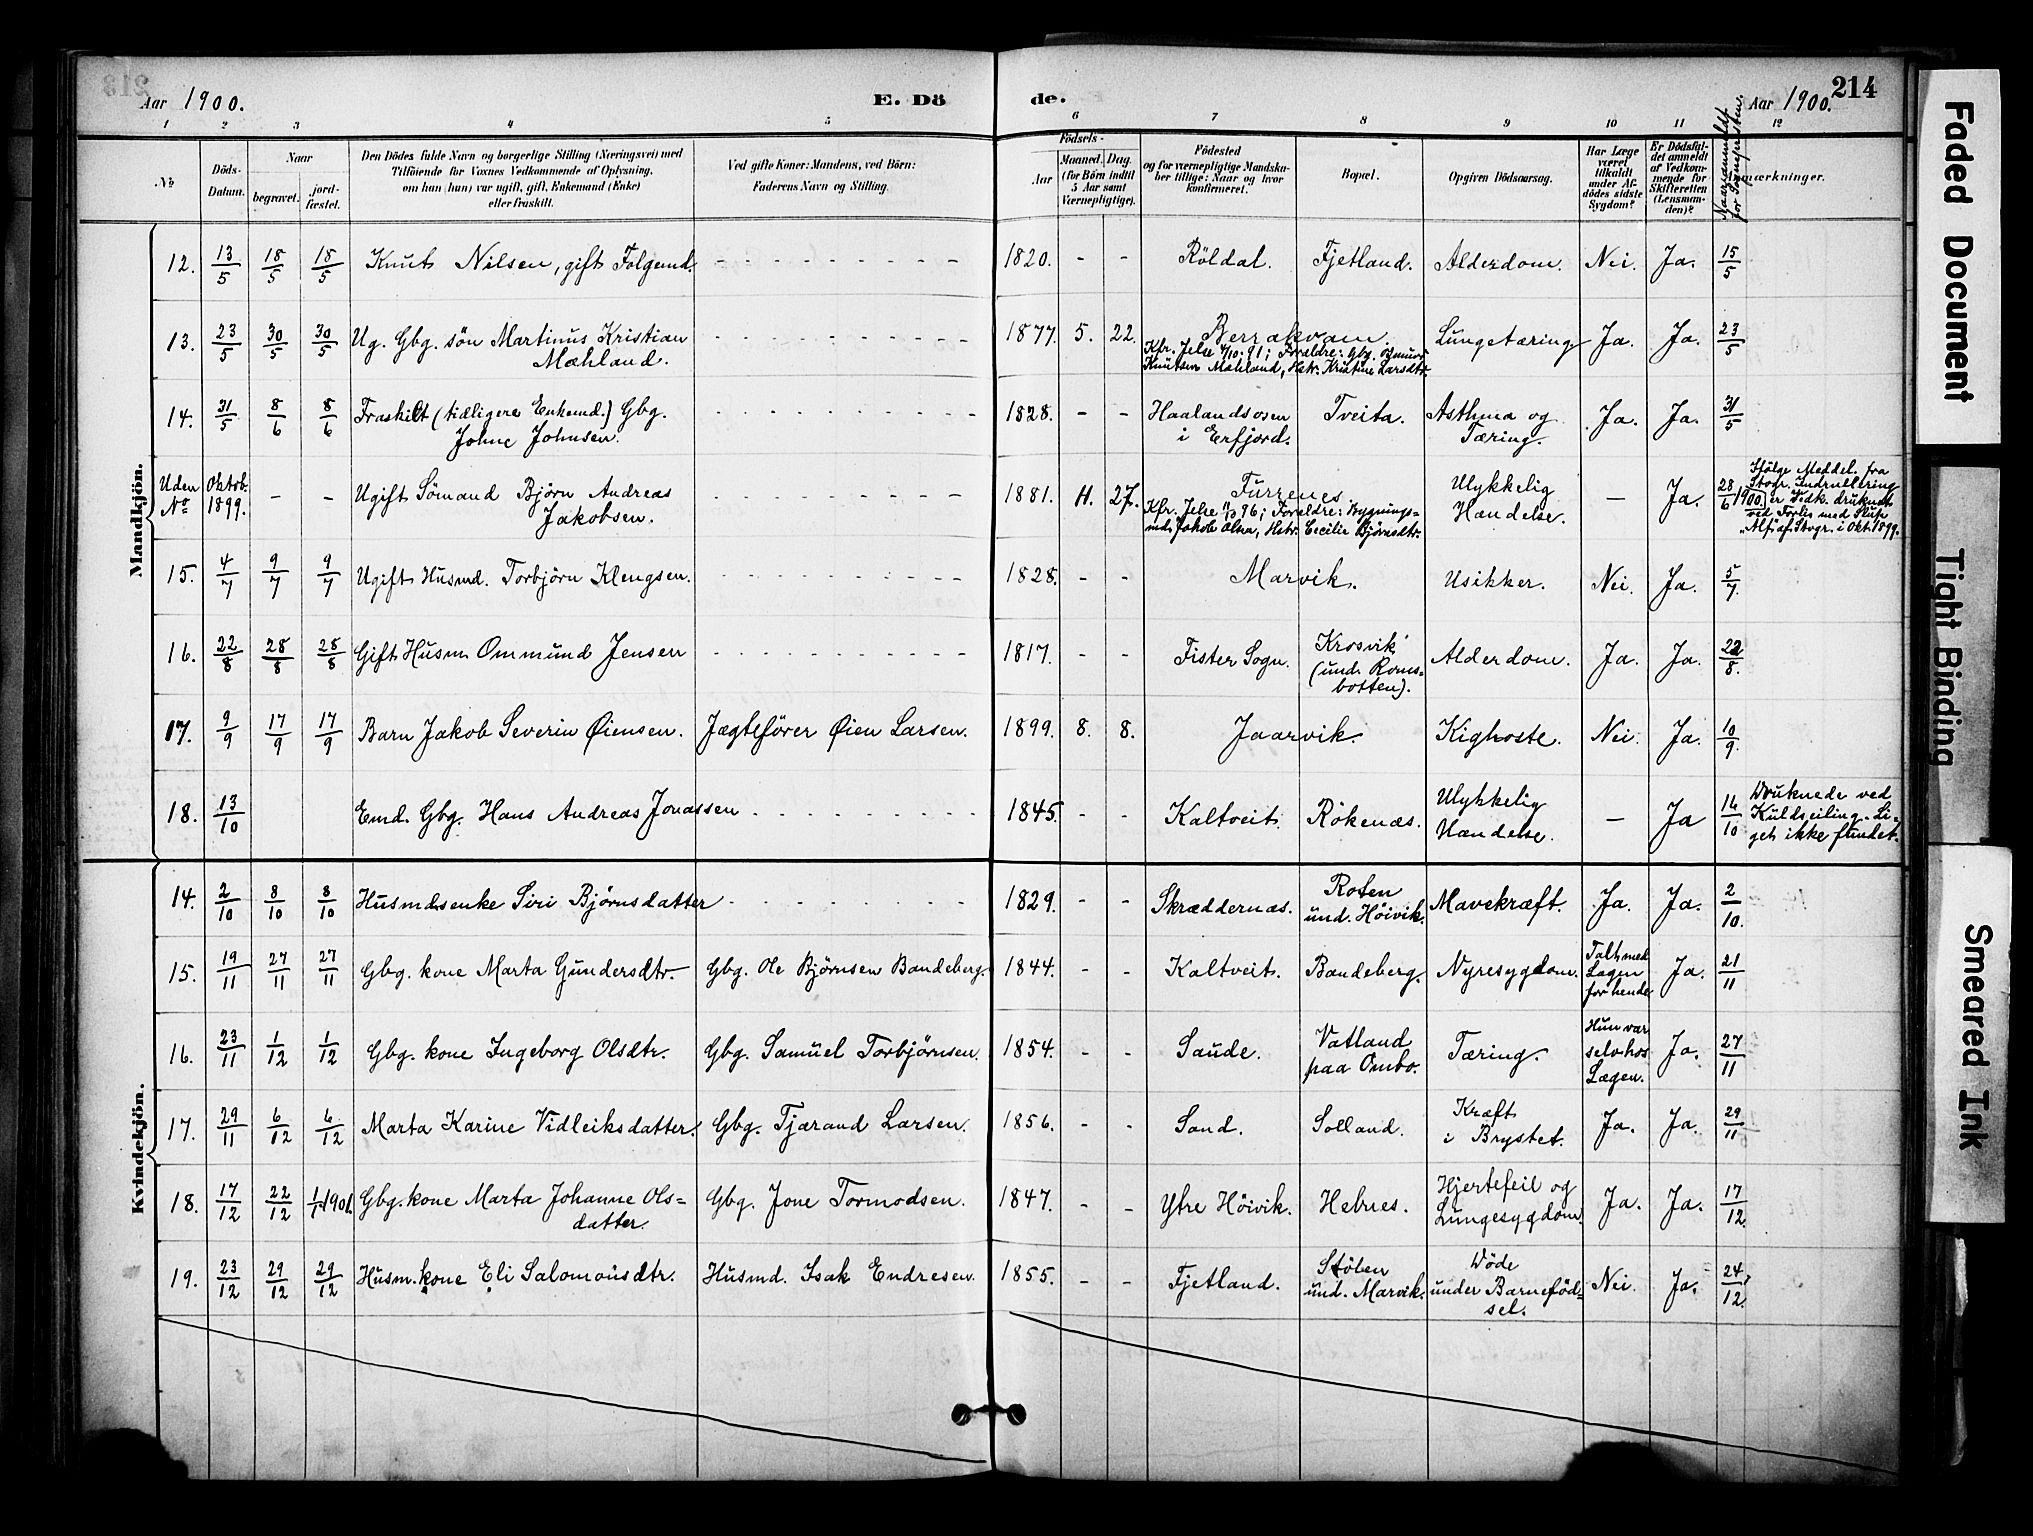 213
Aar 1900.
E. Dö
de.
214
Aar 1900.
1 2 3 4 5 6 7 8 9 10 11 12
No
Döds-Datum.
Naar
begravet.
jord-fæstet.
Den Dödes fulde Navn og borgerlige Stilling (Næringsvei) med
Tilföiende for Voxnes Vedkommende af Oplysning,
om han (hun) var ugift, gift, Enkemand (Enke)
eller fraskilt.
Ved gifte Koner: Mandens, ved Börn:
Faderens Navn og Stilling.
Födsels-
Aar
Maaned. Dag.
(for Börn indtil
5 Aar samt
Værnepligtige).
Födested
og for værnepligtige Mandska-
ber tillige: Naar og hvor
konfirmeret.
Bopæl.
Opgiven Dödsaarsag.
Har Læge
været
tilkaldt
under Af-
dödes sidste
Sygdom?
Er Dödsfal-
det anmeldt
af Vedkom-
mende for
Skifteretten
(Lensman-
den)?
Naar anmeldt
for Sognepresten.
Anmærkninger.
Mandkjön.
12. 13/5 18/5 18/5 Knut Nilsen, gift Folgemd. 1820. - - Röldal. Fjetland. Alderdom. Nei. Ja. 15/5
13. 23/5 30/5 30/5 Ug. Gbg. sön Martinus Kristian 1877. 5. 22. Lungetæring Ja. Ja. 23/5
Mæhland.
Kfr. Jelse 4/10 91; Forældre: Gbg.
Knutsen Mæhland, Hstr. Kristine Larsdtr.
14. 31/5 8/6 8/6 Fraskilt (tidligere Enkemd.) Gbg. 1828. - - Haalandsosen Tveita. Asthma og Ja. Ja. 31/5
Johne Johnsen. i Erfjord. Tæring.
Uden No Oktob. 1899. - - Ugift Sömand Björn Andreas 1881. 4. 27. Furrenes. Ulykkelig - Ja. 28/6 1900
Jakobsen. Hændelse.
Kfr. Jelse 11/10 96; Forældre: Bygnings-
md. Jakob Olsen, Hstr. Cecilie Björnsdtr.
Ifölge Meddel. fra
Stvgr. Indrullering
er Vedk. druknet
ved Forlis med Skip
"Alf" af Stvgr. i Okt. 1899.
15. 4/7 9/7 9/7 Ugift Husmd. Torbjörn Klengsen. 1828. - - Marvik. Usikker. Nei. Ja. 5/7.
16. 22/8 28/8 28/8 Gift Husm. Ommund Jensen 1817. - - Fister Sogn. Krosvik Alderdom. Ja. Ja. 22/8.
(und. Roms-
botten).
17. 9/9 17/9 17/9 Barn Jakob Severin Øiensen. Jægtefører Øien Larsen. 1899. 8. 8. Jaarvik. Kighoste. Nei. Ja. 10/9.
18. 13/10 Emd. Gbg. Hans Andreas Jonassen 1845. Kaltveit. Rökenæs. Ulykkelig - Ja 14/10
Hændelse.
Druknede ved
Kuldseiling. Li-
get ikke fundet.
Kvindekjön.
14. 2/10 8/10 8/10 Husmdsenke Siri Björnsdatter 1829. - - Skræddernæs. Roten Mavekræft. Ja. Ja. 2/10.
und. Höivik.
15. 19/11 27/11 27/11 Gbg. kone Marta Gundersdtr. Gbg. Ole Björnsen Bandeberg. 1844. - - Kaltveit. Bandeberg. Nyresygdom. Talt med Ja. 21/11
Lægen
for hende
16. 23/11 1/12 1/12 Gbg. kone Ingeborg Olsdtr. Gbg. Samuel Torbjörnsen. 1854. - - Saude. Vatland Tæring. Hun var Ja. 27/11
paa Ombo. selv hos
Lægen.
17. 29/11 6/12 6/12 Marta Karine Vidleiksdatter. Gbg. Tjærand Larsen. 1856. - - Sand. Solland. Kræft Ja. Ja. 29/11
i Brystet.
18. 17/12 22/12 1/1 1901. Gbg. kone Marta Johanne Ols- Gbg. Jone Tormodsen. 1847. - - Ytre Höivik. Hebnes. Hjertefeil og Ja. Ja. 17/12.
datter. Lungesygdom.
19. 23/12 29/12 29/12 Husm. kone Eli Salomonsdtr. Husmd. Isak Endresen. 1855. - - Fjetland. Stölen Döde Nei. Ja. 24/12.
und. Marvik. under Barneföd-
sel.
Faded Document
Tight Binding
Smeared Ink